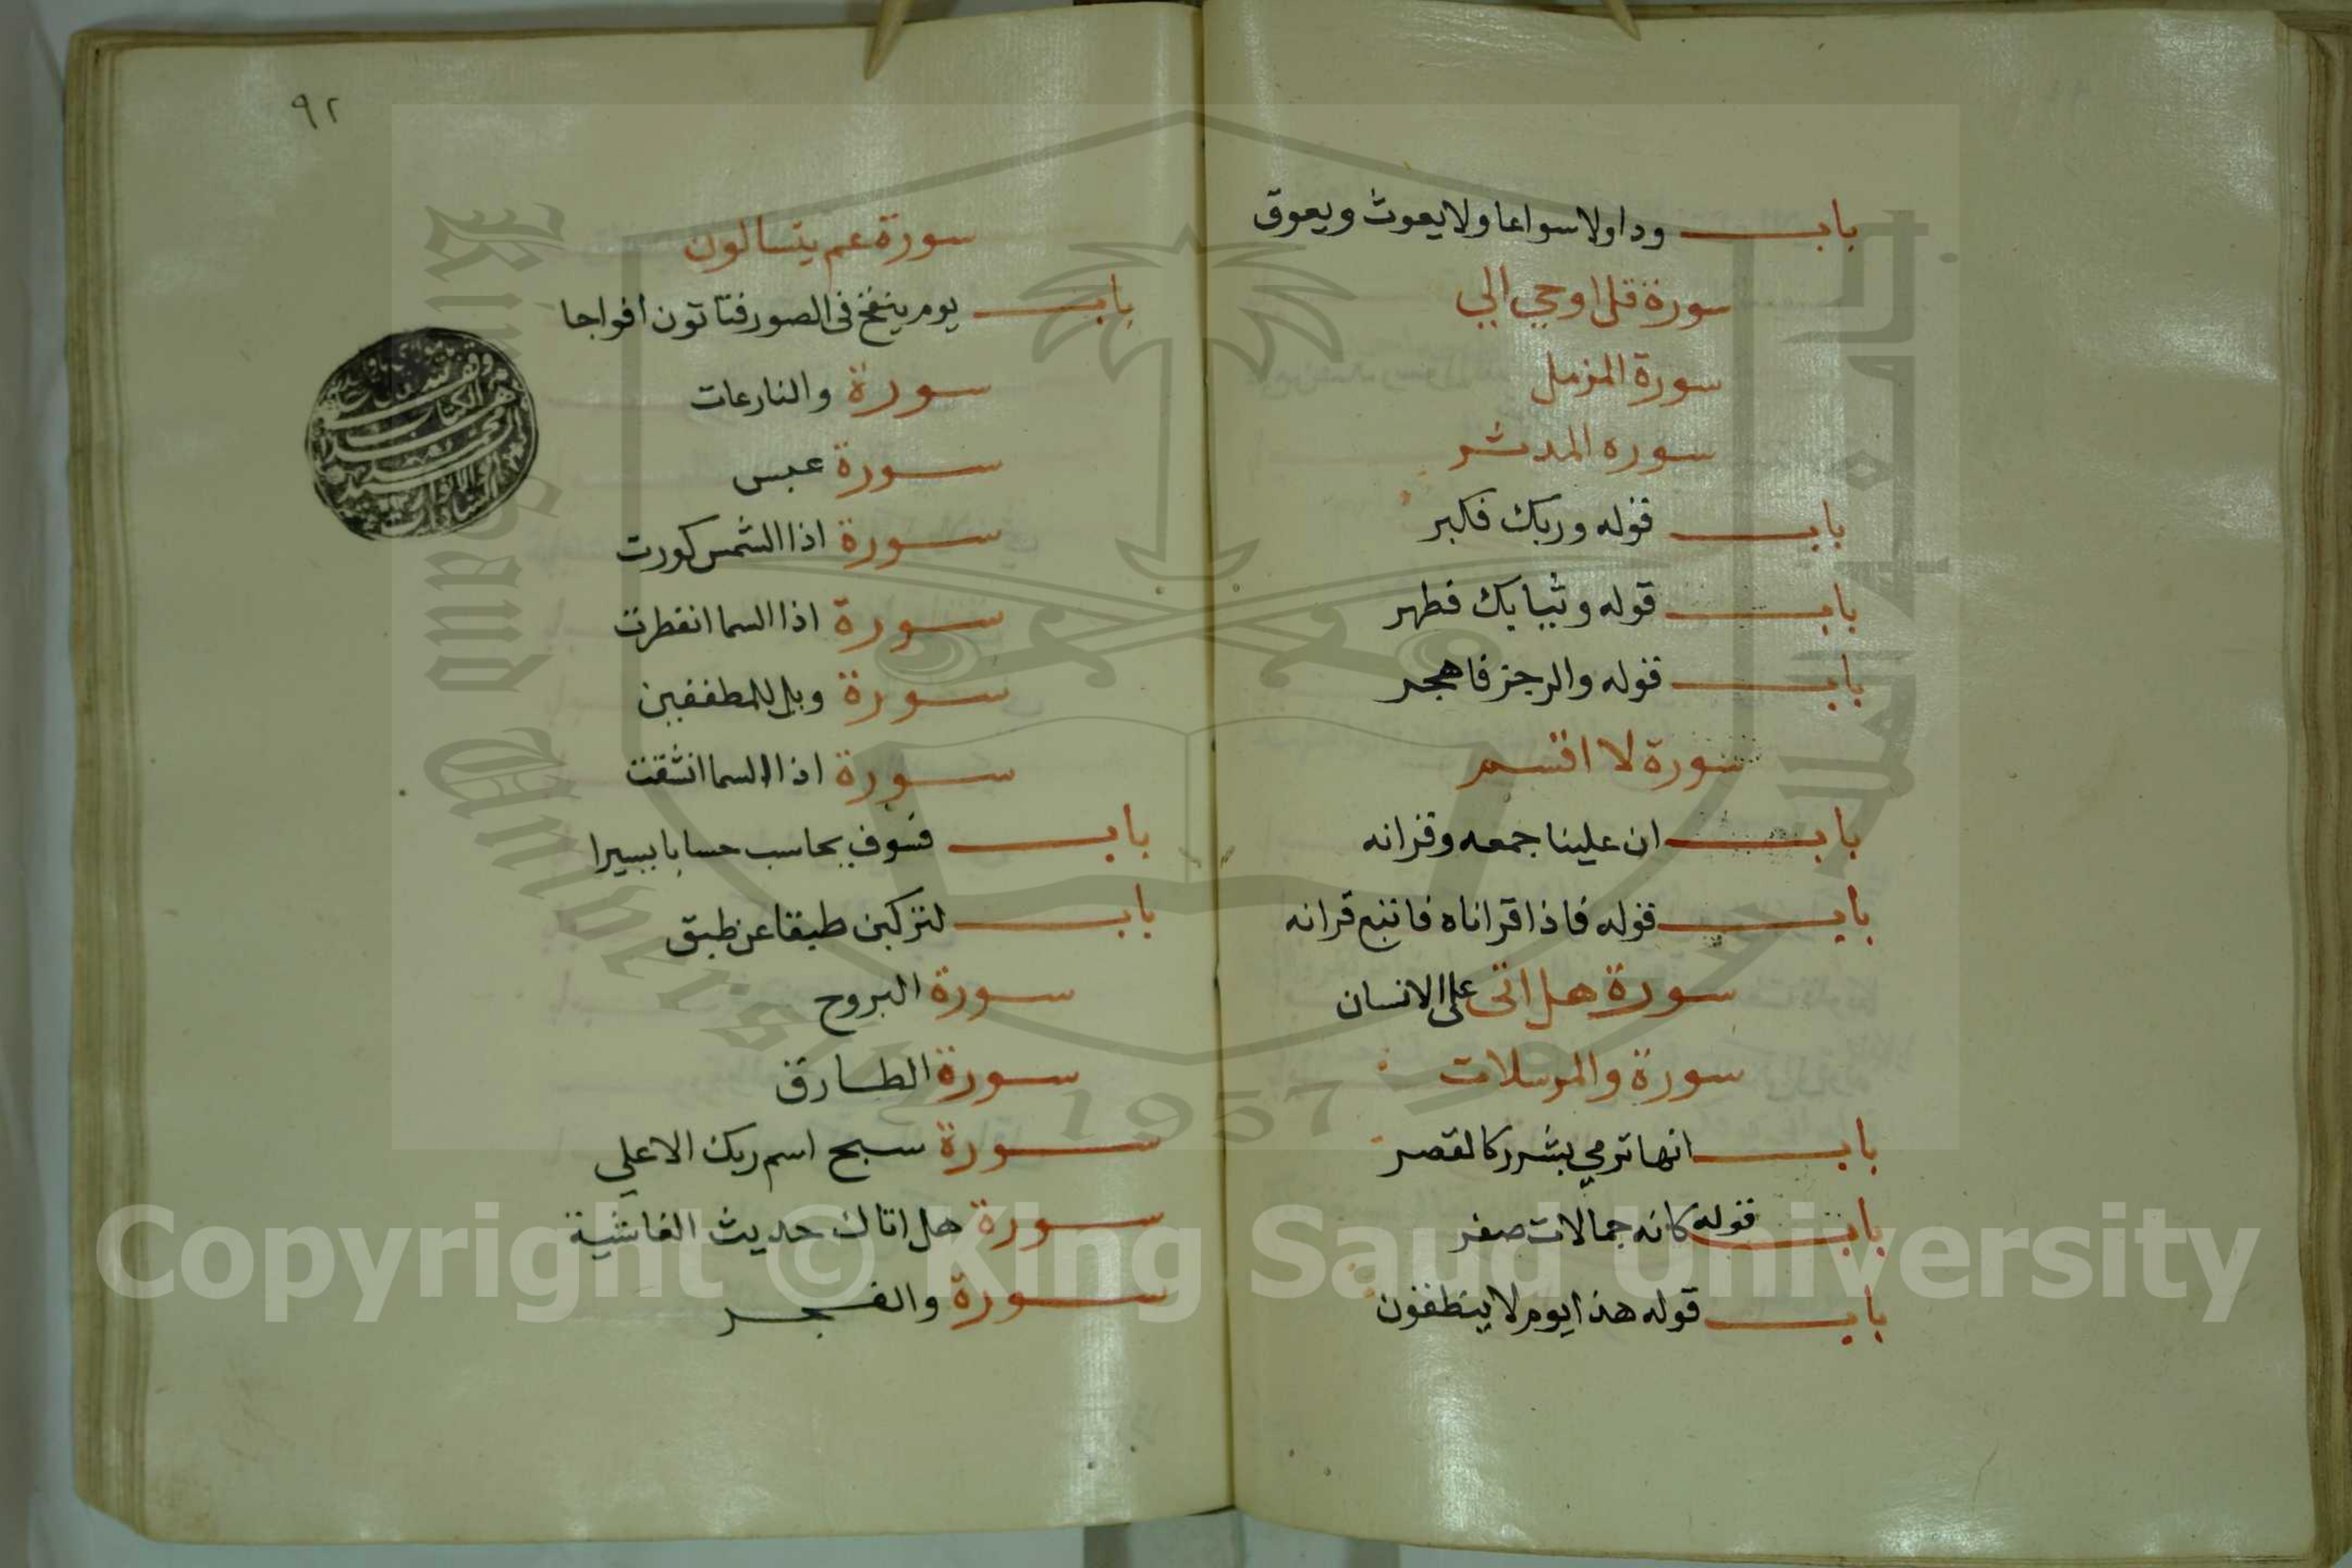 باب ودا ولا سواعا ولا يعوث ويعوق
سورة قل اوحي الي
سورة المزمل
سوره المدثر
باب قوله وربك فكبر
باب قوله وثيابك فطهر
باب قوله والرجز فاهجر
سورة لا اقسم
باب ان علينا جمعه وقرانه
باب قوله فاذا قراناه فاتبع قرانه
سورة هل اتى على الانسان
سورة والمرسلات
باب انها ترمي بشرر كالقصر
باب قوله كانه جمالات صفر
باب قوله هذا يوم لا ينطقون
٩٢
سورة عم يتسالون
باب يوم ينفخ فى الصور فتاتون افواجا
سورة والنازعات
سورة عبس
سورة اذا الشمس كورت
سورة اذا السما انفطرت
سورة ويل للمطففين
سورة اذا السما انشقت
باب فسوف يحاسب حسابا يسيرا
باب لتركبن طبقا عن طبق
سورة البروج
سورة الطارق
سورة سبح اسم ربك الاعلي
سورة هل اتاك حديث الغاشية
سورة والفجر
King Saud University
1957
Copyright © King Saud University